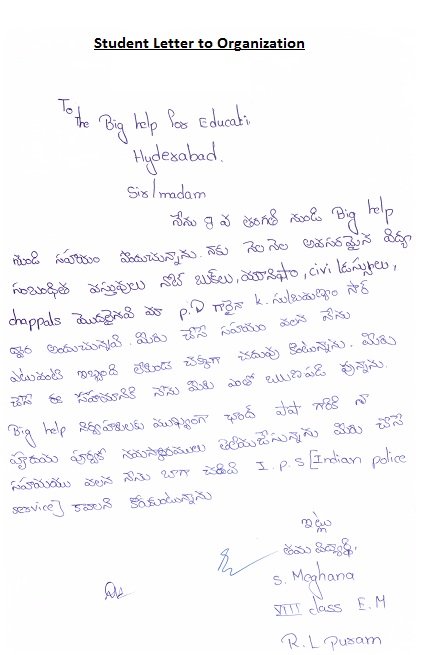 Student Letter to Organization
To
the Big help for Educati
Hyderabad.
Sir/madam
నేను 8 వ తరగతి నుండి Big help
నుండి సహాయం పొందుచున్నాను. నకు నెల నెల అవసరమైన విద్య
సంబంధిత వస్తువులు నోట్ బుక్‌లు, యూనిఫాం, civil డ్రస్సులు,
chappals మొదలైనవి మా P.D గారైన K. సుబ్రమణ్యం సార్
ద్వార అందుచున్నవి. మీరు చేసే సహయం వలన నేను
ఎటువంటి ఇబ్బంది లేకుండ చక్కగా చదువు కుంటున్నాను. మీరు
చేసే ఈ సహాయానికి నేను మీకు ఎంతో ఋణపడి వున్నాను.
Big help నిర్వాహకులకు ముఖ్యంగా చాంద్ పాషా గారికి నా
హృదయ పూర్వక నమస్కారములు తెలియచేసున్నాను మీరు చేసే
సహాయము వలన నేను బాగా చదివి I.P.S [Indian police
service] కావాలని కోరుకుంటున్నాను
ఇట్లు
తమ విద్యార్థి,
S. Meghana
VIII class E.M
R.L Puram